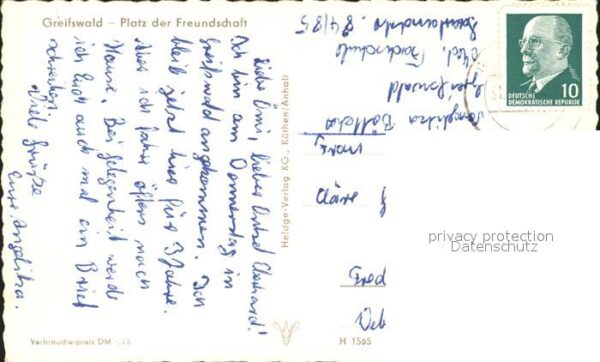 Greifswald – Platz der Freundschaft
Liebe Omi, lieber Onkel Eberhard!
Ich bin am Donnerstag in
Greifswald angekommen. Ich
bleib jetzt hier für 3 Jahre.
Aber ich fahre öfters nach
Hause. Bei Gelegenheit werde
ich Euch auch mal ein Brief
schreiben.
Viele Grüße
Eure Angelika.
Heldge-Verlag KG., Köthen/Anhalt
Verbraucherpreis DM -,15
H 1565
Angelika
Greifswald
Med. Fachschule
84/85
DEUTSCHE
DEMOKRATISCHE REPUBLIK
10
privacy protection
Datenschutz